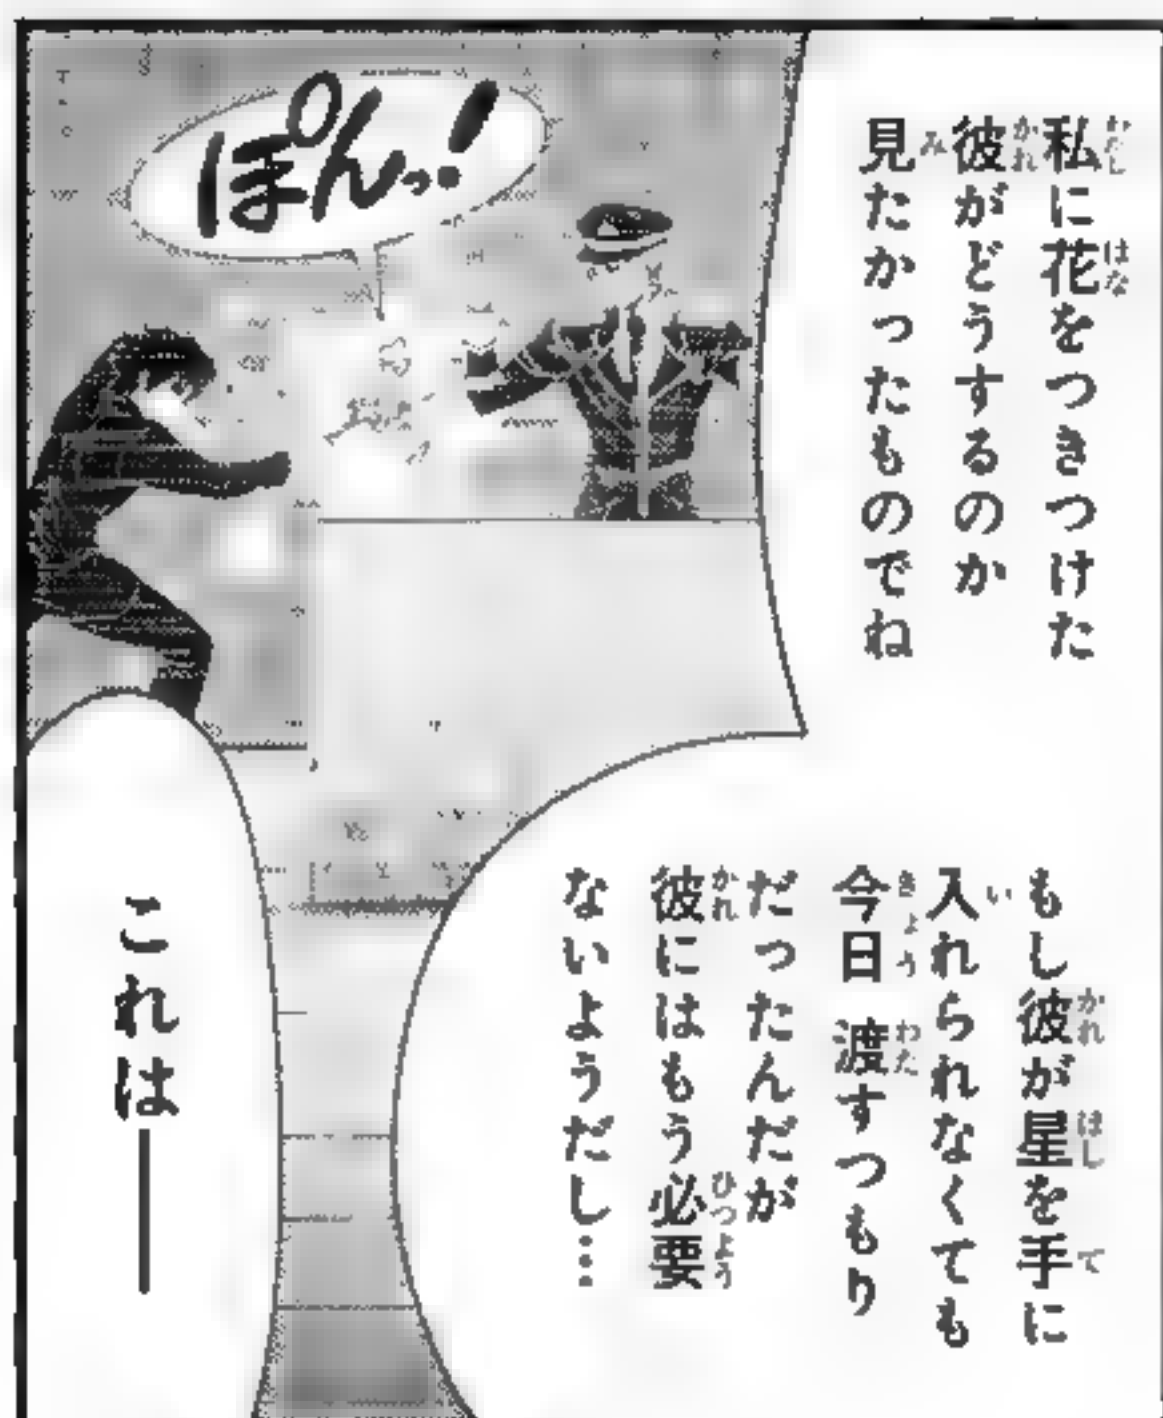 私に花をつきつけた
彼がどうするのか
見たかったものでね
ぽんっ!
もし彼が星を手に
入れられなくても
今日 渡すつもり
だったんだが
彼にはもう必要
ないようだし…
これは――